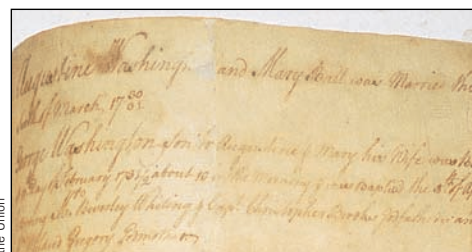 Augustine Washington and Mary Ball was Married the
of March, 17 30/31
George Washington Son to Augustine & Mary his Wife was
Day of February 1731/2 about 10 in the Morning & was Baptiz'd the 5th of
Beverley Whiting & Capt. Christopher Brooks Godfathers and
Gregory Godmother
the Union